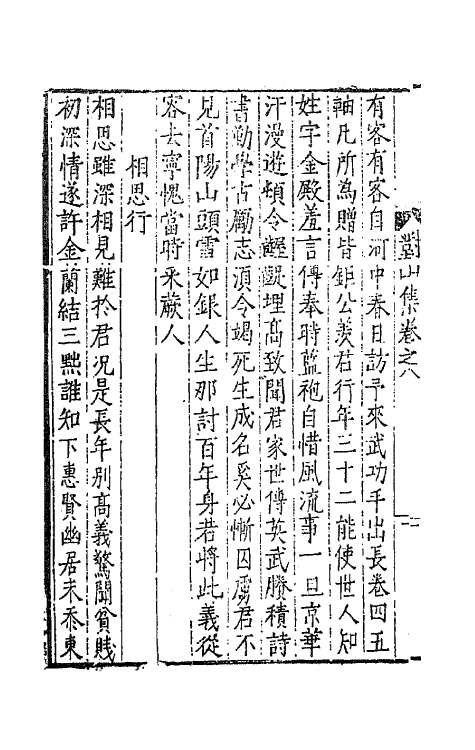 對山集卷之八
有客有客自河中春日訪予來武功手出長卷四五
軸凡所為贈皆鉅公羡君行年三十二能使世人知
姓字金殿羞言傳奉時藍袍自惜風流事一旦京華
汗漫遊頓令齷齪埋高致聞君家世傳英武勝積詩
書勤學古勵志湏令竭死生成名奚必慚囚虜君不
見首陽山頭雪如銀人生那討百年身若將此義從
容去寧愧當時采蕨人
相思行
相思雖深相見難於君况是長年别高義驚聞貧賤
初深情遂許金蘭結三黜誰知下惠賢幽居未忝東